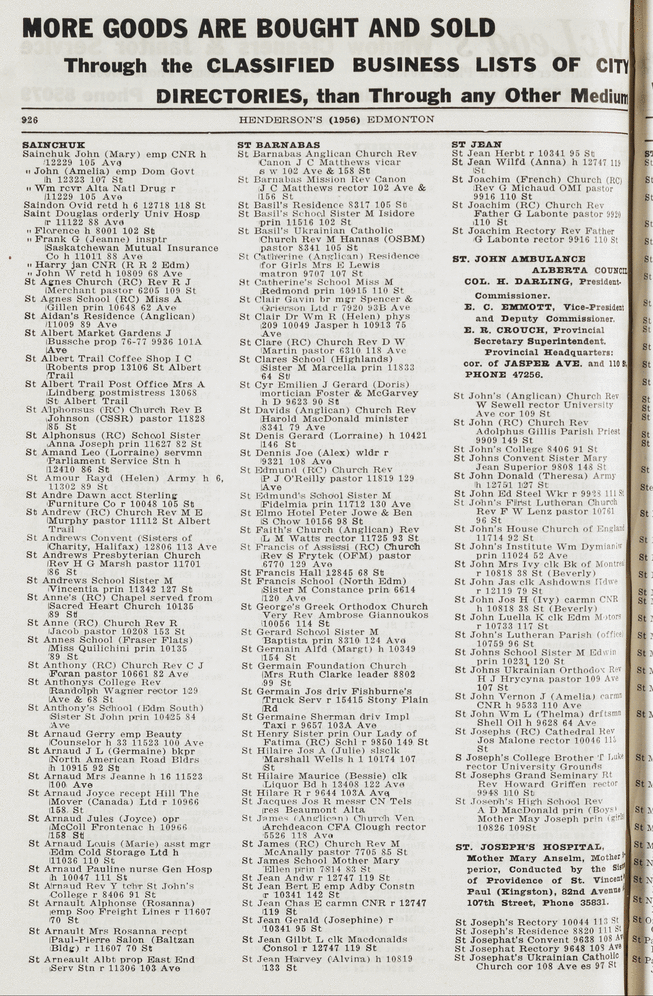 MORE GOODS ARE BOUGHT AND SOLD
Through the CLASSIFIED BUSINESS LISTS OF CITY
DIRECTORIES, than Through any Other Medium
926 HENDERSON'S (1956) EDMONTON
SAINCHUK
Sainchuk John (Mary) emp CNR h
12229 105 Ave
" John (Amelia) emp Dom Govt
h 12323 107 St
" Wm rcvr Alta Natl Drug r
11229 105 Ave
Saindon Ovid retd h 6 12718 118 St
Saint Douglas orderly Univ Hosp
r 11122 88 Ave
" Florence h 8001 102 St
" Frank G (Jeanne) insptr
Saskatchewan Mutual Insurance
Co h 11011 88 Ave
" Harry jan CNR (R R 2 Edm)
" John W retd h 10809 68 Ave
St Agnes Church (RC) Rev R J
Merchant pastor 6205 109 St
St Agnes School (RC) Miss A
Gillen prin 10648 62 Ave
St Aidan's Residence (Anglican)
11009 89 Ave
St Albert Market Gardens J
Bussche prop 76-77 9936 101A
Ave
St Albert Trail Coffee Shop I C
Roberts prop 13106 St Albert
Trail
St Albert Trail Post Office Mrs A
Lindberg postmistress 13068
St Albert Trail
St Alphonsus (RC) Church Rev B
Johnson (CSSR) pastor 11828
85 St
St Alphonsus (RC) School Sister
Anna Joseph prin 11627 82 St
St Amand Leo (Lorraine) servmn
Parliament Service Stn h
12410 86 St
St Amour Rayd (Helen) Army h 6,
11302 89 St
St Andre Dawn acct Sterling
Furniture Co r 10048 105 St
St Andrew (RC) Church Rev M E
Murphy pastor 11112 St Albert
Trail
St Andrews Convent (Sisters of
Charity, Halifax) 12806 113 Ave
St Andrews Presbyterian Church
Rev H G Marsh pastor 11701
86 St
St Andrews School Sister M
Vincentia prin 11342 127 St
St Anne's (RC) Chapel served from
Sacred Heart Church 10135
89 St
St Anne (RC) Church Rev R
Jacob pastor 10208 153 St
St Annes School (Fraser Flats)
Miss Quilichini prin 10135
89 St
St Anthony (RC) Church Rev C J
Foran pastor 10661 82 Ave
St Anthonys College Rev
Randolph Wagner rector 129
Ave & 68 St
St Anthony's School (Edm South)
Sister St John prin 10425 84
Ave
St Arnaud Gerry emp Beauty
Counselor h 33 11523 100 Ave
St Arnaud J L (Germaine) bkpr
North American Road Bldrs
h 10915 92 St
St Arnaud Mrs Jeanne h 16 11523
100 Ave
St Arnaud Joyce recept Hill The
Mover (Canada) Ltd r 10966
158 St
St Arnaud Jules (Joyce) opr
McColl Frontenac h 10966
158 St
St Arnaud Louis (Marie) asst mgr
Edm Cold Storage Ltd h
11036 110 St
St Arnaud Pauline nurse Gen Hosp
h 10047 111 St
St Arnaud Rev Y tchr St John's
College r 8406 91 St
St Arnault Alphonse (Rosanna)
emp Soo Freight Lines r 11607
70 St
St Arnault Mrs Rosanna recpt
Paul-Pierre Salon (Baltzan
Bldg) r 11607 70 St
St Arneault Albt prop East End
Serv Stn r 11306 103 Ave
ST BARNABAS
St Barnabas Anglican Church Rev
Canon J C Matthews vicar
s w 102 Ave & 158 St
St Barnabas Mission Rev Canon
J C Matthews rector 102 Ave &
156 St
St Basil's Residence 8317 105 St
St Basil's School Sister M Isidore
prin 11516 102 St
St Basil's Ukrainian Catholic
Church Rev M Hannas (OSBM)
pastor 8341 105 St
St Catherine (Anglican) Residence
for Girls Mrs E Lewis
matron 9707 107 St
St Catherine's School Miss M
Redmond prin 10915 110 St
St Clair Gavin br mgr Spencer &
Grierson Ltd r 7920 93B Ave
St Clair Dr Wm R (Helen) phys
209 10049 Jasper h 10913 75
Ave
St Clare (RC) Church Rev D W
Martin pastor 6310 118 Ave
St Clares School (Highlands)
Sister M Marcella prin 11833
64 St
St Cyr Emilien J Gerard (Doris)
mortician Foster & McGarvey
h D 9623 90 St
St Davids (Anglican) Church Rev
Harold MacDonald minister
8341 79 Ave
St Denis Gerard (Lorraine) h 10421
146 St
St Dennis Joe (Alex) wldr r
9321 108 Ave
St Edmund (RC) Church Rev
P J O'Reilly pastor 11819 129
Ave
St Edmund's School Sister M
Fidelmia prin 11712 130 Ave
St Elmo Hotel Peter Jowe & Ben
S Chow 10156 98 St
St Faith's Church (Anglican) Rev
L M Watts rector 11725 93 St
St Francis of Assissi (RC) Church
Rev S Frytek (OFM) pastor
6770 129 Ave
St Francis Hall 12845 68 St
St Francis School (North Edm)
Sister M Constance prin 6614
120 Ave
St George's Greek Orthodox Church
Very Rev Ambrose Giannoukos
10056 114 St
St Gerard School Sister M
Baptista prin 8310 124 Ave
St Germain Alfd (Margt) h 10349
154 St
St Germain Foundation Church
Mrs Ruth Clarke leader 8802
99 St
St Germain Jos driv Fishburne's
Truck Serv r 15415 Stony Plain
Rd
St Germaine Sherman driv Impl
Taxi r 9657 103A Ave
St Henry Sister prin Our Lady of
Fatima (RC) Schl r 9850 149 St
St Hilaire Jos A (Julie) slsclk
Marshall Wells h 1 10174 107
St
St Hilaire Maurice (Bessie) clk
Liquor Bd h 13408 122 Ave
St Hilare R r 9644 103A Ave
St Jacques Jos R messr CN Tels
res Beaumont Alta
St James (Anglican) Church Ven
Archdeacon CFA Clough rector
5526 118 Ave
St James (RC) Church Rev M
McAnally pastor 7705 85 St
St James School Mother Mary
Ellen prin 7814 83 St
St Jean Andw r 12747 119 St
St Jean Bert E emp Adby Constn
r 10341 142 St
St Jean Chas E carmn CNR r 12747
119 St
St Jean Gerald (Josephine) r
10341 95 St
St Jean Gilbt L clk Macdonalds
Consol r 12747 119 St
St Jean Harvey (Alvina) h 10819
133 St
ST JEAN
St Jean Herbt r 10341 95 St
St Jean Wilfd (Anna) h 12747 119
St
St Joachim (French) Church (RC)
Rev G Michaud OMI pastor
9916 110 St
St Joachim (RC) Church Rev
Father G Labonte pastor 9920
110 St
St Joachim Rectory Rev Father
G Labonte rector 9916 110 St
ST. JOHN AMBULANCE
ALBERTA COUNCIL
COL. H. DARLING, President-
Commissioner.
E. C. EMMOTT, Vice-President
and Deputy Commissioner.
E. R. CROUCH, Provincial
Secretary Superintendent.
Provincial Headquarters:
cor. of JASPER AVE. and 110 S.
PHONE 47256.
St John's (Anglican) Church Rev
W Sewell rector University
Ave cor 109 St
St John (RC) Church Rev
Adolphus Gillis Parish Priest
9909 149 St
St John's College 8406 91 St
St Johns Convent Sister Mary
Jean Superior 9808 148 St
St John Donald (Theresa) Army
h 12751 127 St
St John Ed Steel Wkr r 9938 111 St
St John's First Lutheran Church
Rev F W Lenz pastor 10761
96 St
St John's House Church of England
11714 92 St
St John's Institute Wm Dymianiw
prin 11024 52 Ave
St John Mrs Ivy clk Bk of Montre
r 10818 38 St (Beverly)
St John Jas clk Ashdowns Hdwe
r 12119 79 St
St John Jos H (Ivy) carmn CNR
h 10818 38 St (Beverly)
St John Luella K clk Edm Motors
r 10733 117 St
St John's Lutheran Parish (office)
10759 96 St
St Johns School Sister M Edwin
prin 10231 120 St
St Johns Ukrainian Orthodox Rev
H J Hrycyna pastor 109 Ave
107 St
St John Vernon J (Amelia) carmn
CNR h 9533 110 Ave
St John Wm L (Thelma) drftsmn
Shell Oil h 9628 64 Ave
St Josephs (RC) Cathedral Rev
Jos Malone rector 10046 115
St
S Joseph's College Brother T Luke
rector University Grounds
St Josephs Grand Seminary Rt
Rev Howard Griffen rector
9948 110 St
St Joseph's High School Rev
A D MacDonald prin (Boys)
Mother May Joseph prin (girls
10826 109St
ST. JOSEPH'S HOSPITAL,
Mother Mary Anselm, Mother
perior, Conducted by the Sis
of Providence of St. Vincent
Paul (Kingston), 82nd Avenue
107th Street, Phone 35831.
St Joseph's Rectory 10044 113 St
St Joseph's Residence 8820 111 St
St Josephat's Convent 9638 108 Ave
St Josephat Rectory 9648 108 Ave
St Josephat's Ukrainian Catholic
Church cor 108 Ave es 97 St